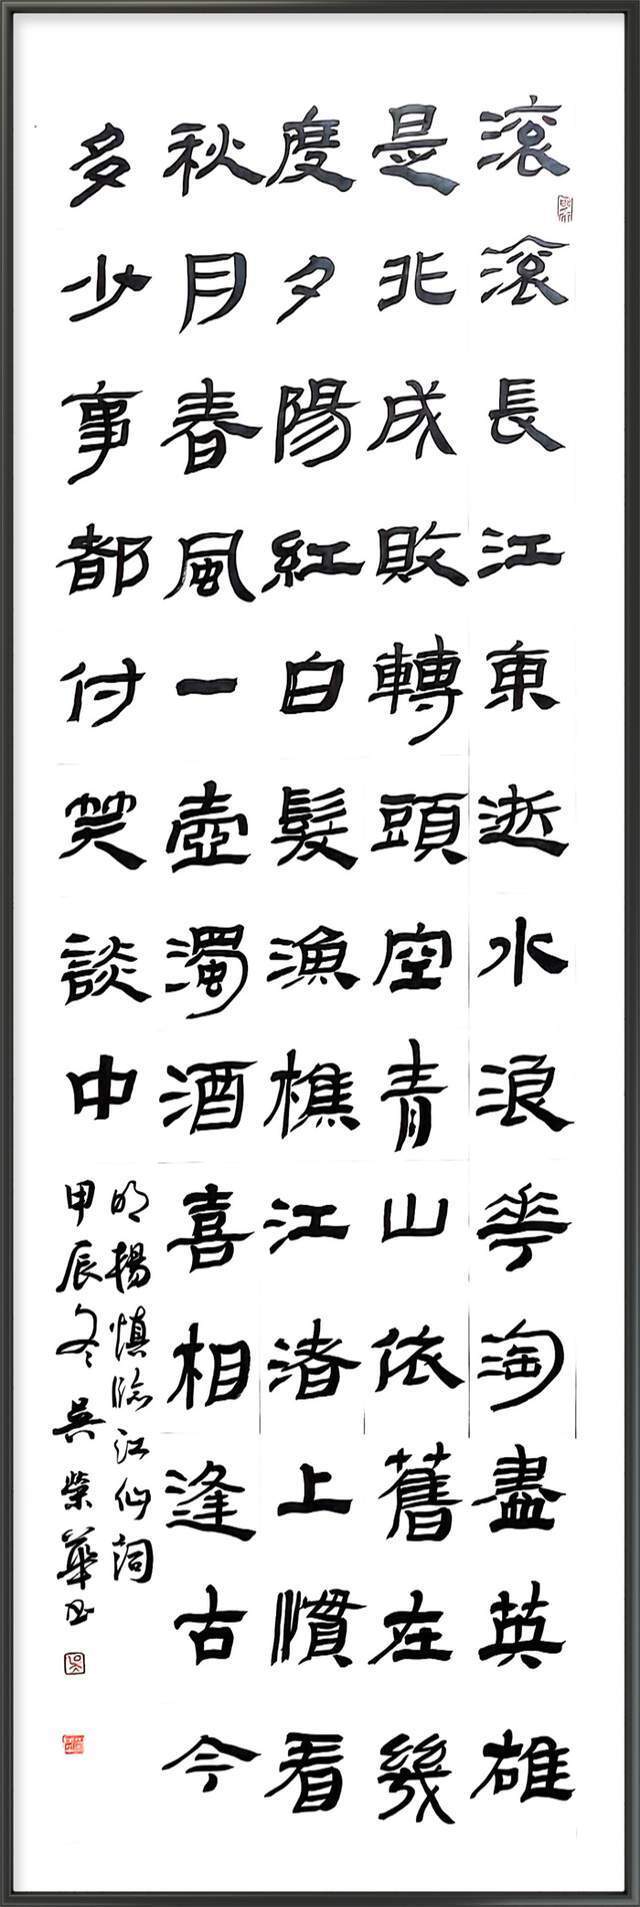 滚滚長江東逝水浪花淘盡英雄
是北成敗轉頭空青山依舊在幾
度夕陽紅白髮漁樵江渚上慣看
秋月春風一壺濁酒喜相逢古今
多少事都付笑談中
明楊慎臨江仙詞
甲辰冬吳榮華书
吳